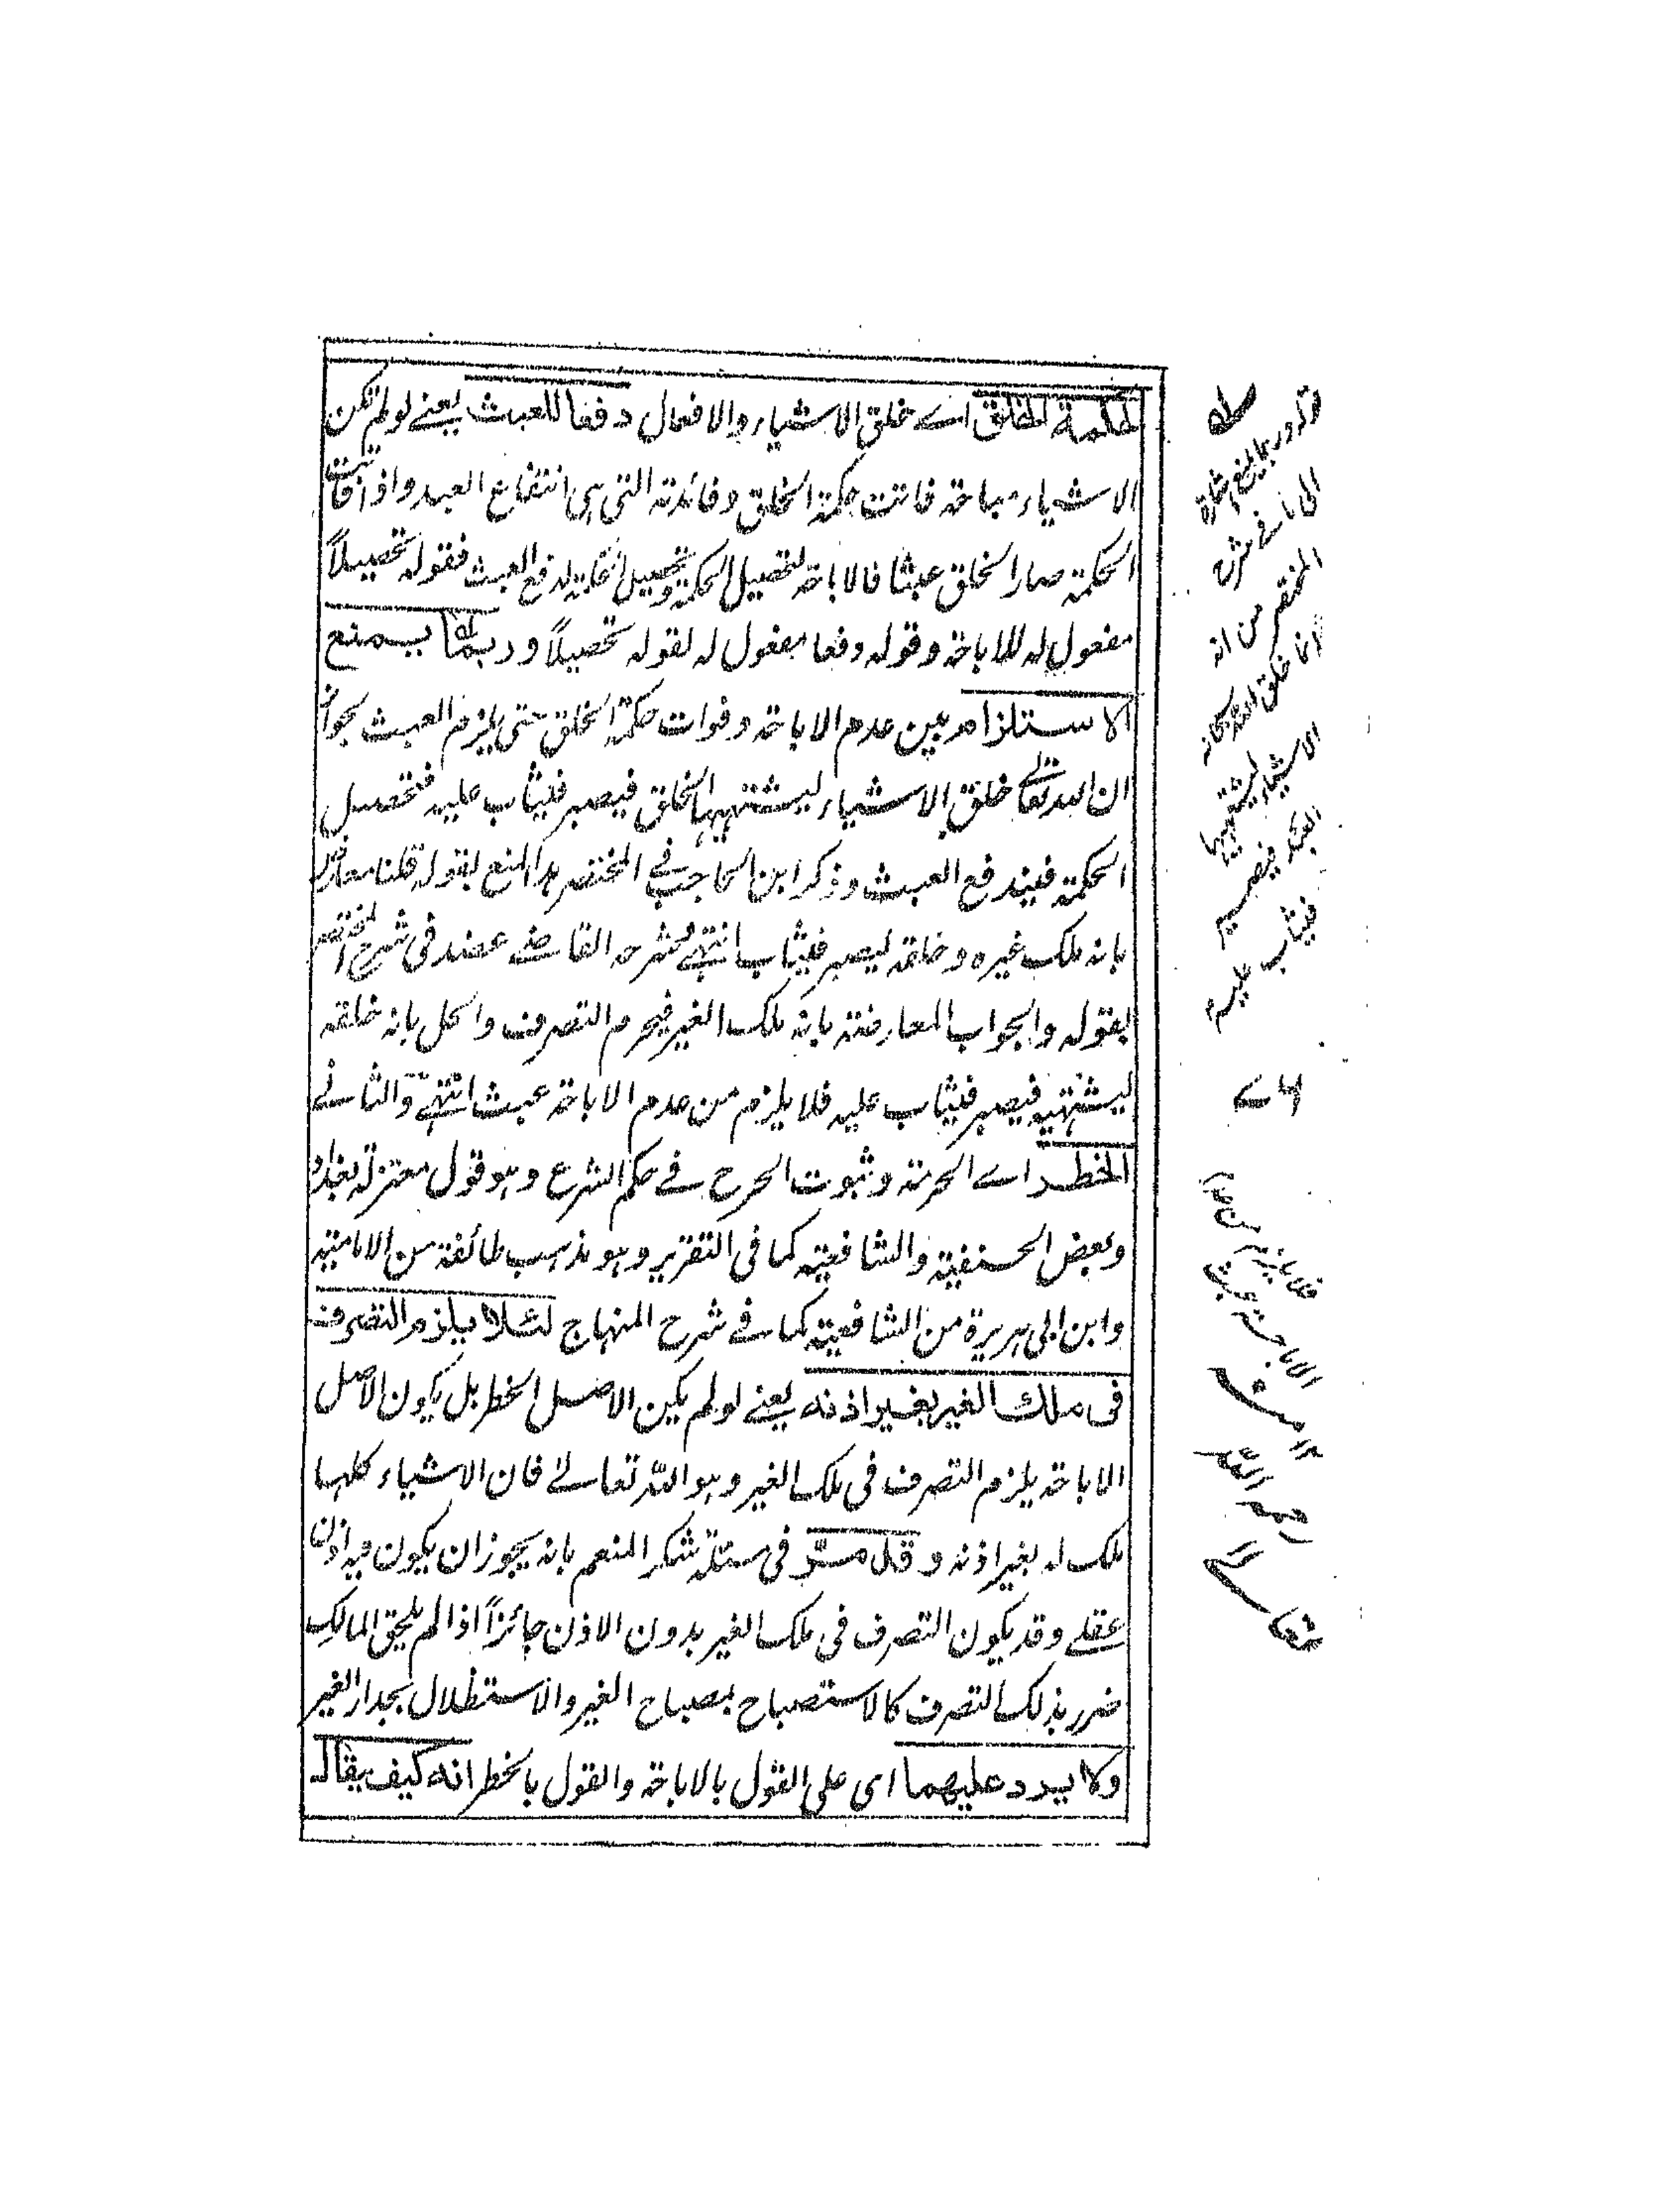 لحكمة الخلق اے خلق الاشياء والافعال دفعا للعبث يعنے لو لم تكن
الاشياء مباحة فاتت حكمة الخلق وفائدته التى هى انتفاع العبد واذا فاتت
الحكمة صار الخلق عبثا فالاباحة لتحصيل الحكمة وتحصيل الحكمة لدفع العبث فقوله تحصيلاً
مفعول له للاباحة وقوله دفعا مفعول له لقوله تحصيلاً وربما يمنع
الاستلزام بين عدم الاباحة وفوات حكمة الخلق حتى يلزم العبث بجواز
ان الله تعالے خلق الاشياء ليشتهيها الخلق فيصبر فيثاب عليه فتحصل
الحكمة فيندفع العبث وذكر ابن الحاجب فے المختصر هذا المنع بقوله قلنا معارض
بانه ملك غيره وخلقه ليصبر فيثاب انتهے شرحه القاضے عضد فى شرح المختصر
بقوله والجواب المعارضة بانه ملك الغير فيحرم التصرف والحل بانه خلقه
ليشتهيه فيصبر فيثاب عليه فلا يلزم من عدم الاباحة عبث انتهے والثانے
الخطر اے الحرمة وثبوت الحرج فے حكم الشرع وهو قول معتزلة بغداد
وبعض الحنفية والشافعية كما فى التقرير وهو مذهب طائفة من الامامية
وابن ابى هريرة من الشافعية كما فے شرح المنهاج لئلا يلزم التصرف
فى ملك الغير بغير اذنه يعنے لو لم يكن الاصل الخطر بل يكون الاصل
الاباحة يلزم التصرف فى ملك الغير وهو الله تعالےٰ فان الاشياء كلها
ملك له بغير اذنه وقد مرّ فى مسئلة شكر المنعم بانه يجوز ان يكون فيه اذن
عقلے وقد يكون التصرف فى ملك الغير بدون الاذن جائزاً اذا لم يلحق المالك
ضرر بذلك التصرف كالاستصباح بمصباح الغير والاستظلال بجدار الغير
ولا يرد عليهما اى على القول بالاباحة والقول بالخطر انه كيف يقال
قوله وربما يمنع اشارة
الى ما فے شرح
المختصر من انه
انما خلق الله سبحانه
الاشياء ليشتهيها
العبد فيصبر
فيثاب عليه
فلا يلزم من عدم
الاباحة عبث
١٢ منه
رحمه الله
تعالے